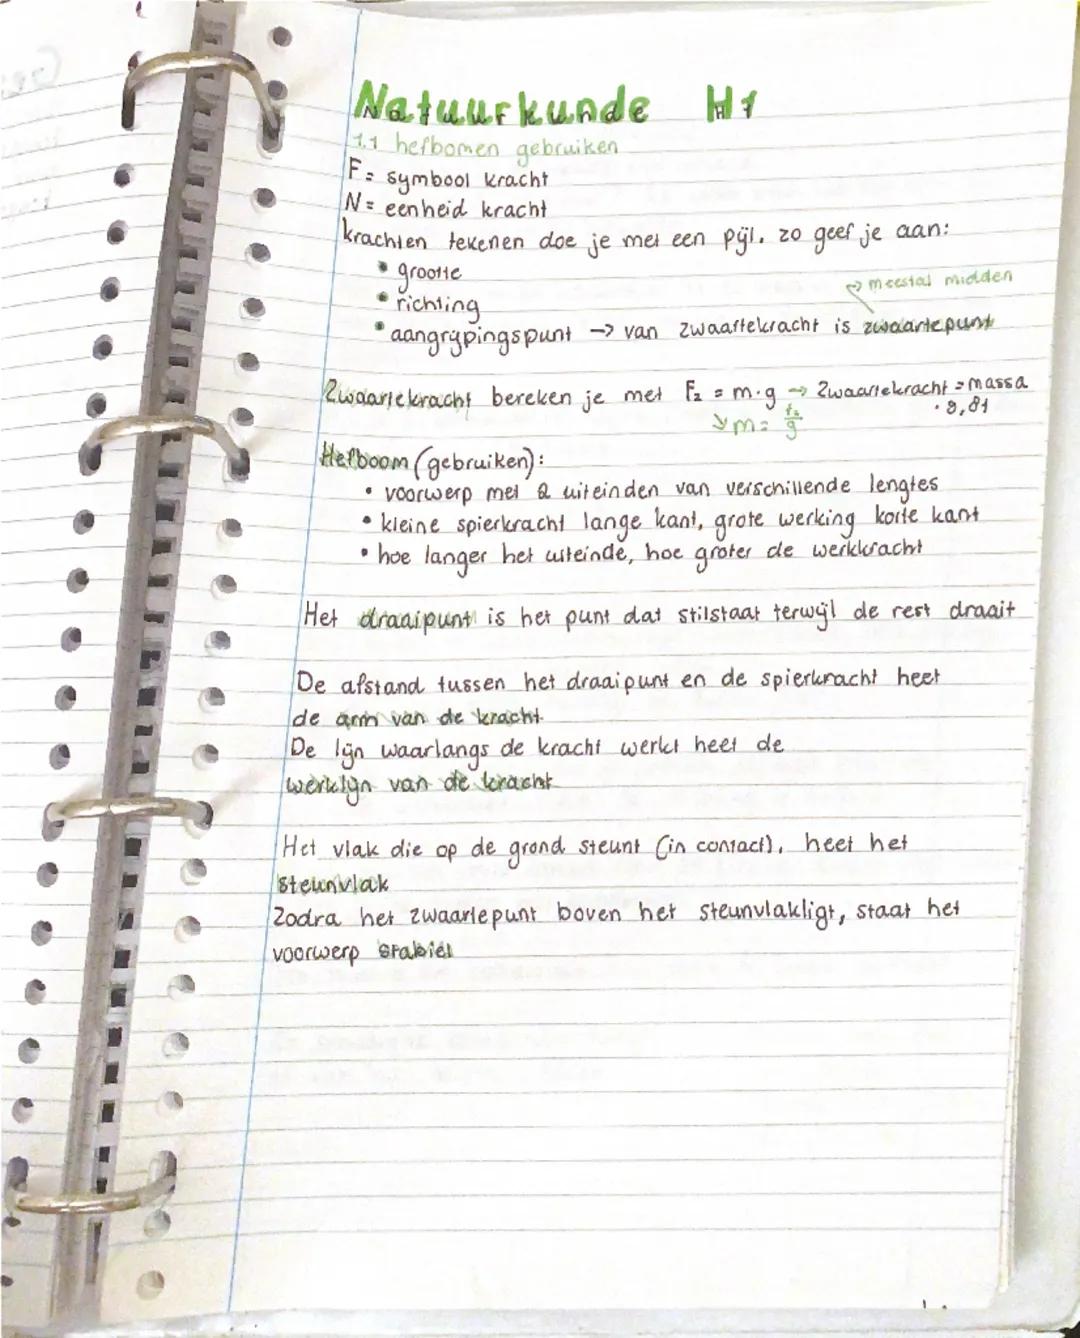 Natuurkunde H1
1.1 hefbomen gebruiken
F = symbool kracht
N = eenheid kracht
krachten tekenen doe je met een pijl. zo geef je aan:
• grootte
• richting
↪ meestal midden
• aangrijpingspunt → van zwaartekracht is zwaartepunt
Zwaartekracht bereken je met Fz = m·g → Zwaartekracht = massa
· 9,81
↘ m = Fz/g
Hefboom (gebruiken):
• voorwerp met 2 uiteinden van verschillende lengtes
• kleine spierkracht lange kant, grote werking korte kant
• hoe langer het uiteinde, hoe groter de werkkracht
Het draaipunt is het punt dat stilstaat terwijl de rest draait
De afstand tussen het draaipunt en de spierkracht heet
de arm van de kracht
De lijn waarlangs de kracht werkt heet de
werklijn van de kracht
Het vlak die op de grond steunt (in contact), heet het
steunvlak
Zodra het zwaartepunt boven het steunvlak ligt, staat het
voorwerp stabiel